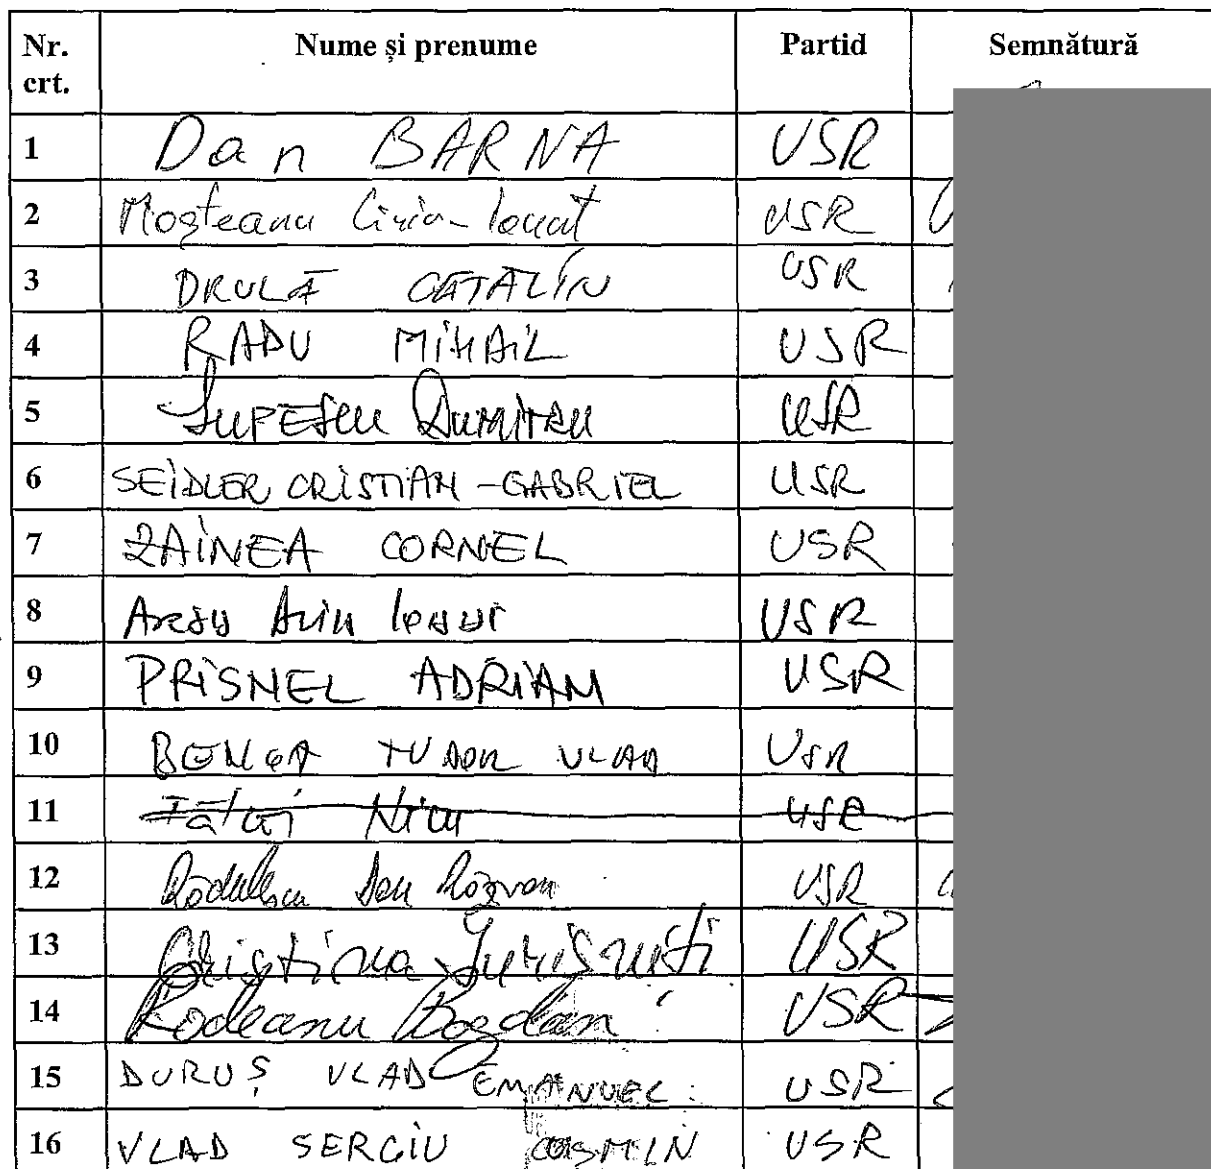 Nr. crt. Nume și prenume Partid Semnătură
1 Dan BARNA USR
2 Moșteanu Liviu-Ionuț USR
3 DRULĂ CĂTĂLIN USR
4 RADU MIHAIL USR
5 LUPESCU DUMITRU USR
6 SEIDLER CRISTIAN-GABRIEL USR
7 ZAINEA CORNEL USR
8 USR
9 PRISNEL ADRIAN USR
10 BENGA TUDOR VLAD USR
11 USR
12 Rădulescu Dan Răzvan USR
13 Christina Iurișniți USR
14 Rodeanu Bogdan USR
15 DURUȘ VLAD EMANUEL USR
16 VLAD SERGIU COSMIN USR